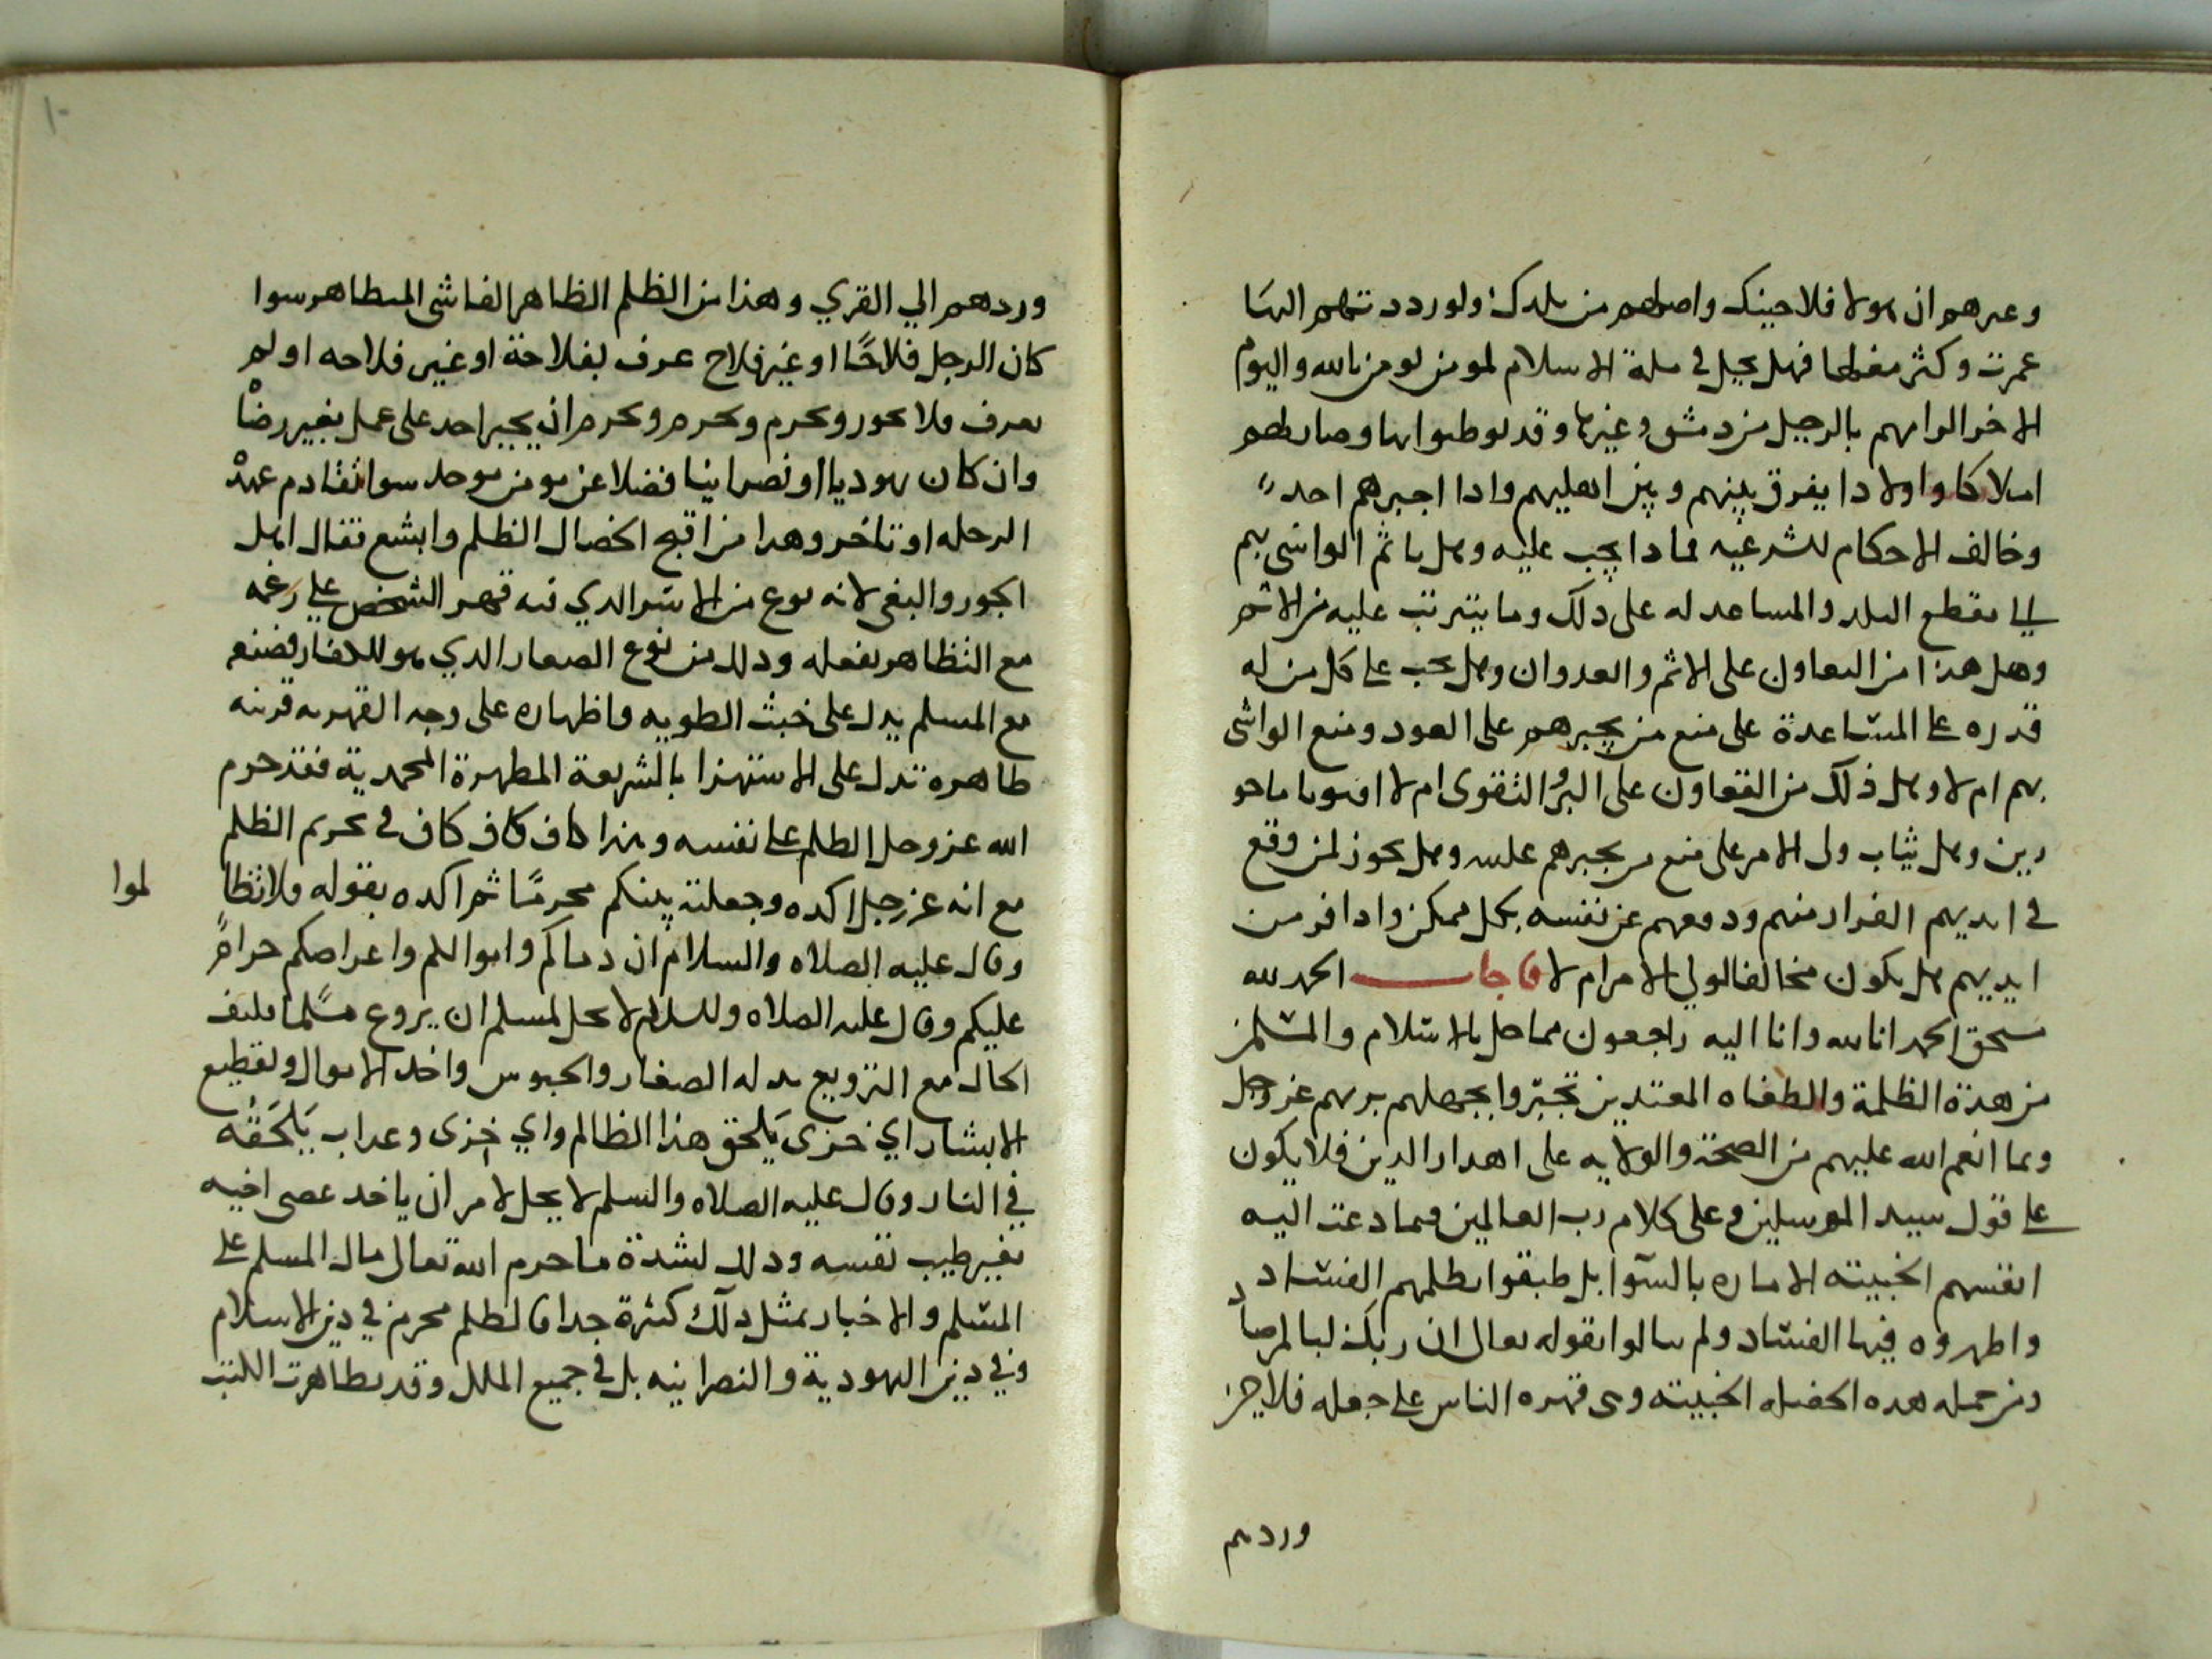 وعىرهم ان هولا فلاحينك واصلهم من بلدك ولو رددتهم اليها
عمرت وكثر مغلها فهل يحل في ملة الاسلام لمومن يومن بالله واليوم
الاخر الزامهم بالرحيل من دمشق وغيرها وقد توطنوا بها وصار لهم
املاكا واولادا يفرق بينهم وبين اهليهم واذا اجبرهم احد
وخالف الاحكام الشرعيه فماذا يجب عليه وهل ياثم الواشي بهم
الي مقطع البلد والمساعد له على ذلك وما يترتب عليه من الاثم
وهل هذا من التعاون على الاثم والعدوان وهل يجب على كل من له
قدره على المساعدة على منع من يجبرهم على العود ومنع الواشي
بهم ام لا وهل ذلك من التعاون على البر والتقوى ام لا افتونا ماجو
رين وهل يثاب ولي الامر على منع من يجبرهم عليه وهل يجوز لمن وقع
في ايديهم الفرار منهم ودفعهم عن نفسه بكل ممكن واذا فر من
ايديهم هل يكون مخالفا لولي الامر ام لا فاجاب الحمد لله
مستحق الحمد انا لله وانا اليه راجعون مما حل بالاسلام والمسلمين
من هذة الظلمة والطغاه المعتدين تجبروا بجهلهم بربهم عز وجل
وبما انعم الله عليهم من الصحة والولايه على اهدار الدين فلا يكون
على قول سيد المرسلين وعلى كلام رب العالمين فما دعت اليه
انفسهم الخبيثه الاماره بالسوا بل طبقوا بظلمهم الفساد
واظهروه فيها الفساد ولم يبالوا بقوله تعالى ان ربك لبالمرصاد
ومن جمله هذه الخصله الخبيثه وهي قهره الناس على جعله فلاحين
وردهم
وردهم الي القري وهذا من الظلم الظاهر الفاشي المتظاهر سوا
كان الرجل فلاحًا او غير فلاح عرف بفلاحة او غير فلاحه او لم
يعرف فلا يجوز ويحرم ويحرم ويحرم ان يجبر احد على عمل بغير رضا
وان كان يهوديا او نصرانيا فضلا عن مومن موحد سوا تقادم عهد
الرحله او تاخر وهدا من اقبح الخصال الظلم وابشع نقال اهل
الجور والبغي لانه نوع من الاسر الدي فيه قهر الشخص على رغمه
مع التظاهر بفعله ودلك من نوع الصغار الدي هو للكفار فصنعه
مع المسلم يدل على خبث الطويه واظهاره على وجه القهر به قرينه
ظاهره تدل على الاستهزا بالشريعة المطهرة المحمدية فقد حرم
الله عز وجل الظلم على نفسه وهذا كاف كاف كاف في تحريم الظلم
مع انه عز وجل اكده وجعلته بينكم محرمًا ثم اكده بقوله فلا تظا
لموا
وقال عليه الصلاه والسلام ان دماكم واموالكم واعراضكم حرام
عليكم وقال عليه الصلاه والسلام لا يحل لمسلم ان يروع مسلما فكيف
الحال مع الترويع بدله الصغار والحبوس واخد الاموال وتقطيع
الابشار اي خزى يلحق هذا الظالم واي خزى وعداب يلحقه
في النار وقال عليه الصلاه والسلم لا يحل لامر ان ياخد عصى اخيه
بغير طيب نفسه ودلك لشدة ما حرم الله تعالى مال المسلم على
المسلم والاخبار بمثل دلك كثيرة جدا فالظلم محرم في دين الاسلام
وفي دين اليهودية والنصرانيه بل في جميع الملل وقد تظاهرت الكتب